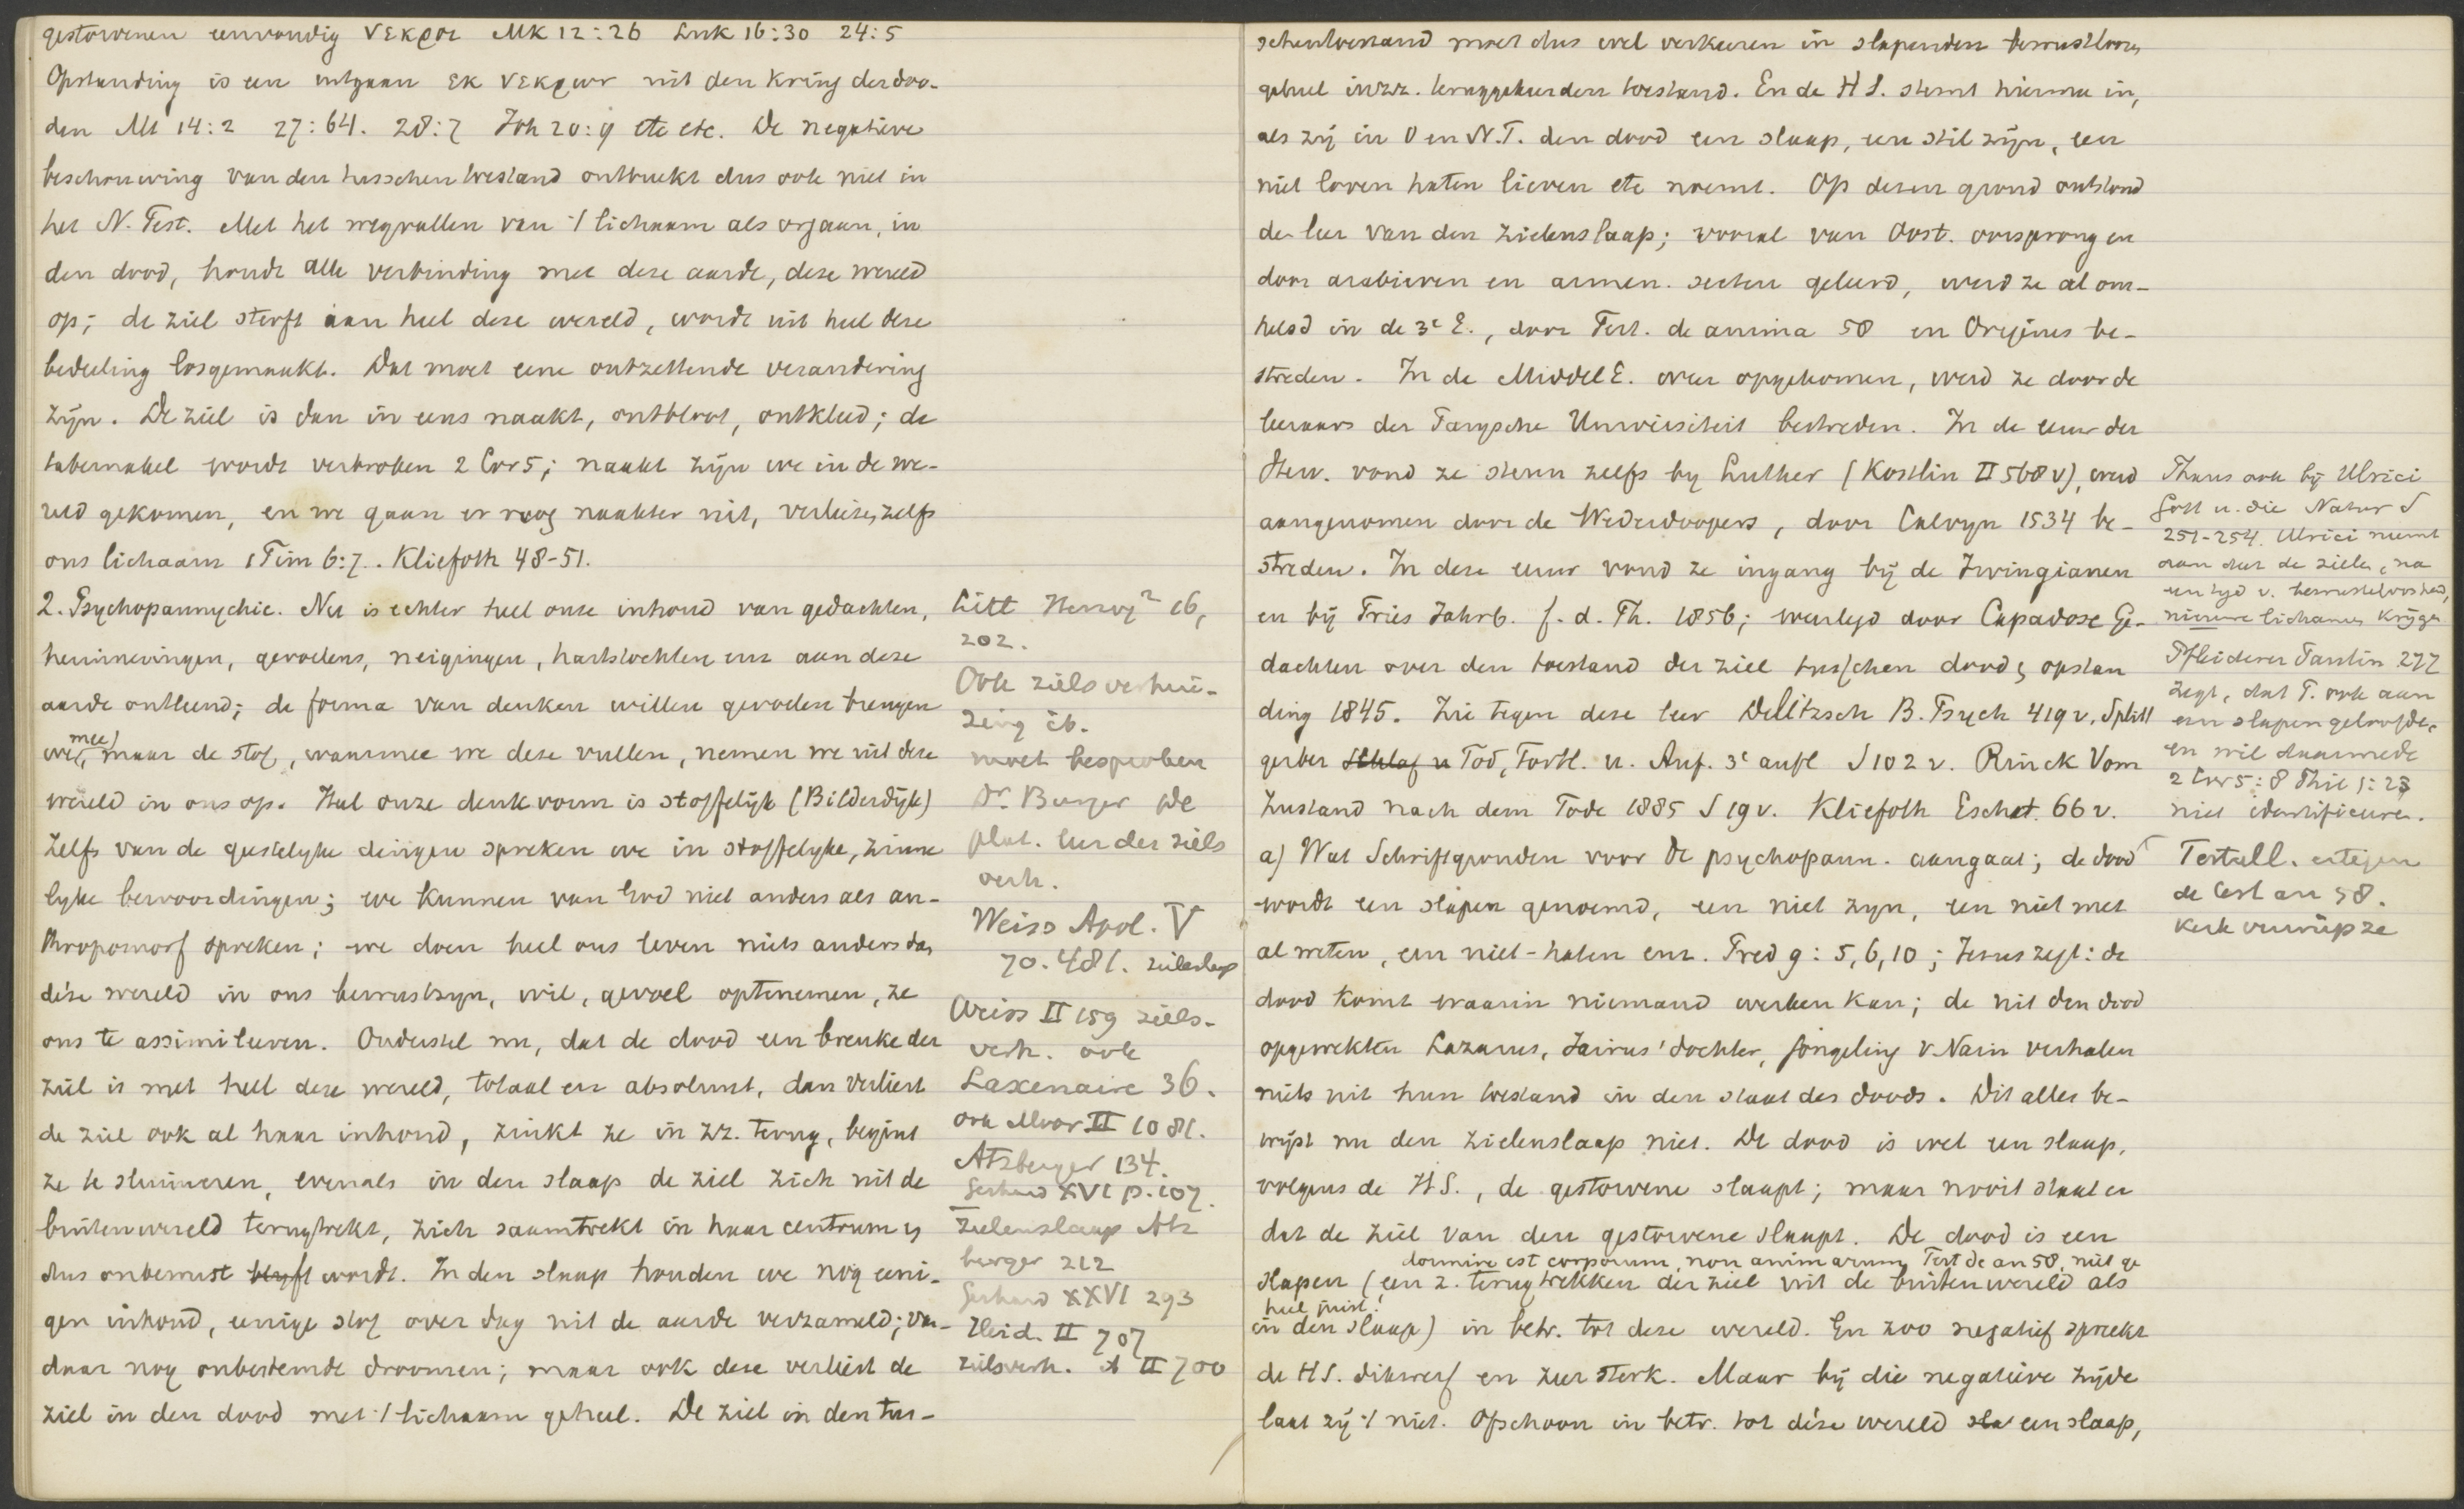 gestorvenen eenvoudig νεκροι Mk 12:26 Luk 16:30 24:5
Opstanding is een uitgaan εκ νεκρων uit den kring der doo-
den Mt 14:2 27:64. 28:7 Joh 20:9 etc etc. De negatieve
beschouwing van den tusschentoestand ontbreekt dus ook niet in
het N. Test. Met het wegvallen van 't lichaam als orgaan, in
den dood, houdt alle verbinding met deze aarde, deze wereld
op; de ziel sterft aan heel deze wereld, wordt uit heel deze
bedeeling losgemaakt. Dat moet eene ontzettende verandering
zijn. De ziel is dan in eens naakt, ontbloot, ontkleed; de
tabernakel wordt verbroken 2 Cor 5; naakt zijn we in de we-
reld gekomen, en we gaan er nog naakter uit, verliezen zelfs
ons lichaam 1 Tim 6:7. Kliefoth 48-51.
2. Psychopannychie. Nu is echter heel onze inhoud van gedachten,
herinneringen, gevoelens, neigingen, hartstochten enz aan deze
aarde ontleend; de forma van denken willen gevoelen brengen
we mee, maar de stof, waarmee we deze vullen, nemen we uit deze
wereld in ons op. Heel onze denkvorm is stoffelijk (Bilderdijk)
Zelfs van de geestelyke dingen spreken we in stoffelyke, zinne
lyke bewoordingen; we kunnen van God niet anders als an-
thropomorf spreken; we doen heel ons leven niets anders dan
déze wereld in ons bewustzyn, wil, gevoel optenemen, ze
ons te assimileeren. Onderstel nu, dat de dood een breuke der
ziel is met heel deze wereld, totaal en absoluut, dan verliest
de ziel ook al haar inhoud, zinkt ze in zz. terug, begint
ze te sluimeren, evenals in den slaap de ziel zich uit de
buitenwereld terugtrekt, zich saamtrekt in haar centrum en
dus onbewust blyft wordt. In den slaap houden we nog eeni-
gen inhoud, eenige stof over dag uit de aarde verzameld; van-
daar nog onbestemde droomen; maar ook deze verliest de
ziel in den dood met 't lichaam geheel. De ziel in den tus-
Litt Herzog² 16,
202.
Ook zielsverhui-
zing ib.
moet besproken
Dr. Burger De
plat. leer der ziels
verh.
Weiss Apol. V
70. 481. zielenslaap
Weiss II 159 ziels-
verh. ook
Laxenaire 36.
ook Moor II 1081.
Atzberger 134.
Gerhard XVI p. 107.
Zielenslaap Atz
berger 212
Gerhard XXVI 293
Heid. II 707
zielsverh. A II 700
schentoestand moet dus wel verkeeren in slapenden bewustloozen
geheel in zz. teruggekeerden toestand. En de H S. stemt hiermee in,
als zij in O en N.T. den dood een slaap, een stil zijn, een
niet loven haten lieven etc noemt. Op dezen grond ontstond
de leer van den zielenslaap; vooral van Oost. oorsprong en
door arabieren en armen. secten geleerd, werd ze al om-
helsd in de 3e E., door Tert. de anima 58 en Origenes be-
streden. In de Middel E. weer opgekomen, werd ze door de
leeraars der Parysche Universiteit bestreden. In de eeuw der
Herv. vond ze steun zelfs by Luther (Kostlin II 568 v), werd
aangenomen door de Wederdoopers, door Calvyn 1534 be-
streden. In deze eeuw vond ze ingang bij de Irvingianen
en bij Fries Jahrb. f. d. Th. 1856; weerlegd door Capadose Ge-
dachten over den toestand der ziel tusschen dood & opstan
ding 1845. Zie tegen deze leer Delitzsch B. Psych 419 v, Splitt
gerber Schlaf u Tod, Fortl. u. Auf. 3e aufl S 102 v. Rinck Vom
Zustand nach dem Tode 1885 S 19 v. Kliefoth Eschat. 66 v.
a) Wat Schriftgronden voor de psychopann. aangaat; de dood
wordt een slapen genoemd, een niet zyn, een niet met
al weten, een niet-haten enz. Pred 9:5,6,10; Jezus zegt: de
dood komt waarin niemand werken kan; de uit den dood
opgewekten Lazarus, Jairus' dochter, jongeling v Nain verhalen
niets uit hun toestand in den staat des doods. Dit alles be-
wijst nu den zielenslaap niet. De dood is wel een slaap,
volgens de H S., de gestorvene slaapt; maar nooit staat er
dat de ziel van den gestorvene slaapt. De dood is een
dormire est corporum, non animarum Tert de an 58, niet ge
heel juist!
slapen (een z. terugtrekken der ziel uit de buitenwereld als
in den slaap) in betr. tot deze wereld. En zoo negatief spreekt
de HS. dikwerf en zeer sterk. Maar bij die negatieve zijde
laat zij 't niet. Ofschoon in betr. tot déze wereld sla een slaap,
Thans ook bij Ulrici
Gott u. die Natur S
251-254. Ulrici neemt
aan dat de zielen, na
een tyd v. bewusteloosheid,
nieuwe lichamen krijgen
Pfleiderer Paulin 277
zegt, dat P. ook aan
een slapen geloofde,
en wil daarmede
2 Cor 5:8 Phil 1:23
niet identificeeren.
Tertull. ertegen
de an 58.
Kerk verwierp ze